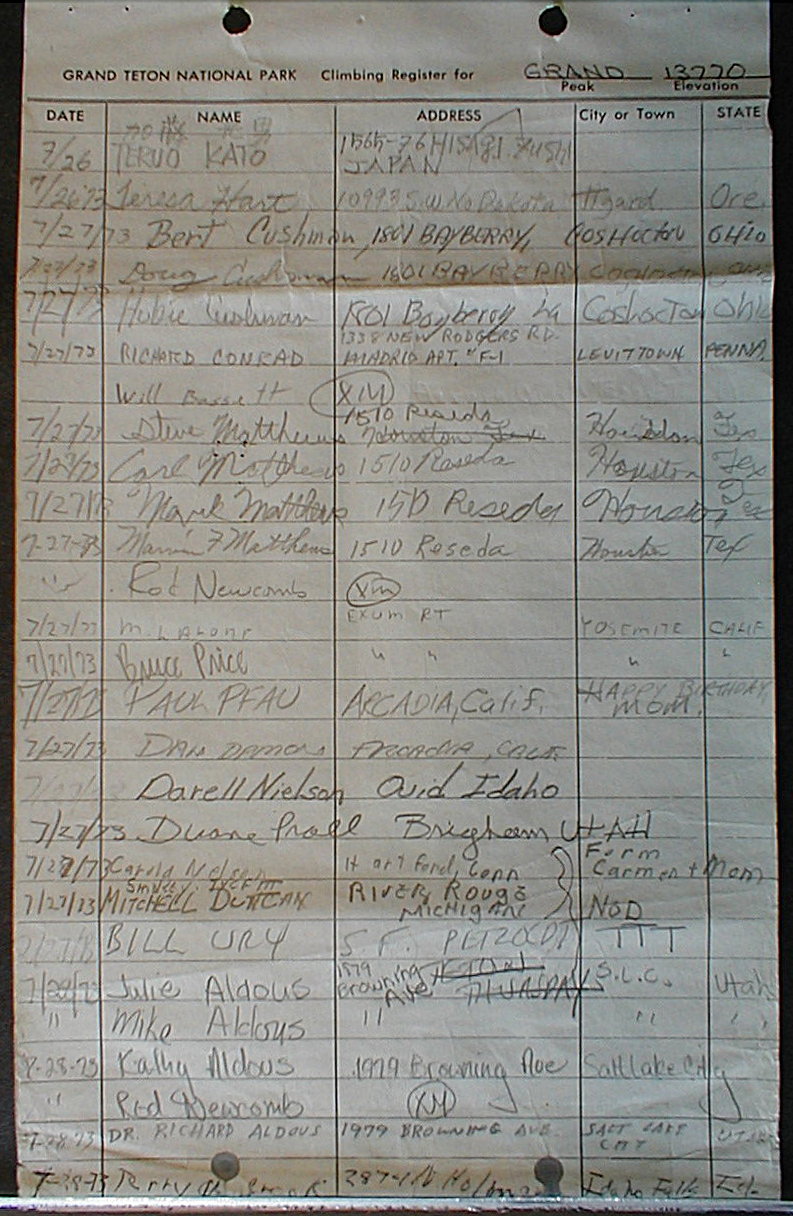 GRAND TETON NATIONAL PARK Climbing Register for GRAND 13770
Peak Elevation
DATE NAME ADDRESS City or Town STATE
加藤
7/26 TERUO KATO 1565-76 HISAGI. ZUSHI
JAPAN
7/26/73 Teresa Hart 10993 S.W. No Dakota Tigard Ore
7/27/73 Bert Cushman, 1801 BAYBERRY, COSHOCTON OHIO
7/27/73 Doug Cushman 1801 BAYBERRY
7/27/73 Hobie Cushman 1801 Bayberry La Coshocton Ohio
1338 NEW RODGERS RD.
7/27/73 RICHARD CONRAD MADRID APT. "F-1 LEVITTOWN PENNA.
Will Bassett XM
1510 Reseda
7/27/73 Steve Matthews Houston Tex Houston Tex
7/27/73 Carl Matthews 1510 Reseda Houston Tex
7/27/73 Mark Matthews 1510 Reseda Houston, Tex
7-27-73 Marvin F Matthews 1510 Reseda Houston Tex
" Rod Newcomb XM
EXUM RT
7/27/73 M. YOSEMITE CALIF
7/27/73 Bruce Price " " " "
7/27/73 PAUL PFAU ARCADIA, Calif. HAPPY BIRTHDAY,
MOM.
7/27/73 DAN ARCADIA, CALIF.
Darell Nielson Ovid Idaho
7/27/73 Duane Prall Brigham UTAH
7/27/73 Carold Nelson Hartford, Conn Form
Carmen + Mom
7/27/73 MITCHELL DUNCAN RIVER ROUGE
MICHIGAN NOD
BILL URY S F. PETZOLDT TTT
7/28/73 Julie Aldous 1979 Browning Ave THURSDAYS S.L.C. Utah
" Mike Aldous " " "
7-28-73 Kathy Aldous 1979 Browning Ave Salt Lake City
" Rod Newcomb XM
7-28-73 DR. RICHARD ALDOUS 1979 BROWNING AVE. SALT LAKE
CITY UTAH
7-28-73 Idaho Falls Id.